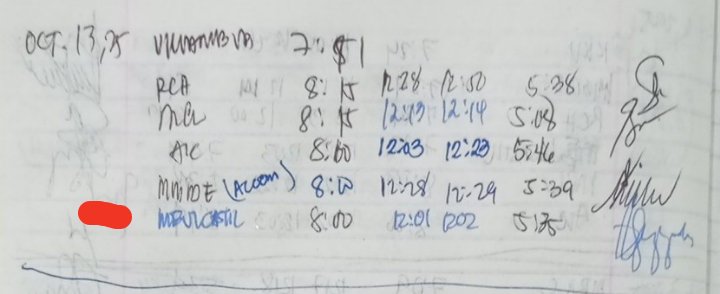 OCT. 13, 25 VILLANUEVA 7:51
RCA 8:15 12:28 12:50 5:38
MCL 8:15 12:13 12:14 5:08
AC 8:00 12:03 12:23 5:46
(ACOOM) 8:00 12:28 12:29 5:39
8:00 12:01 1202 5:35